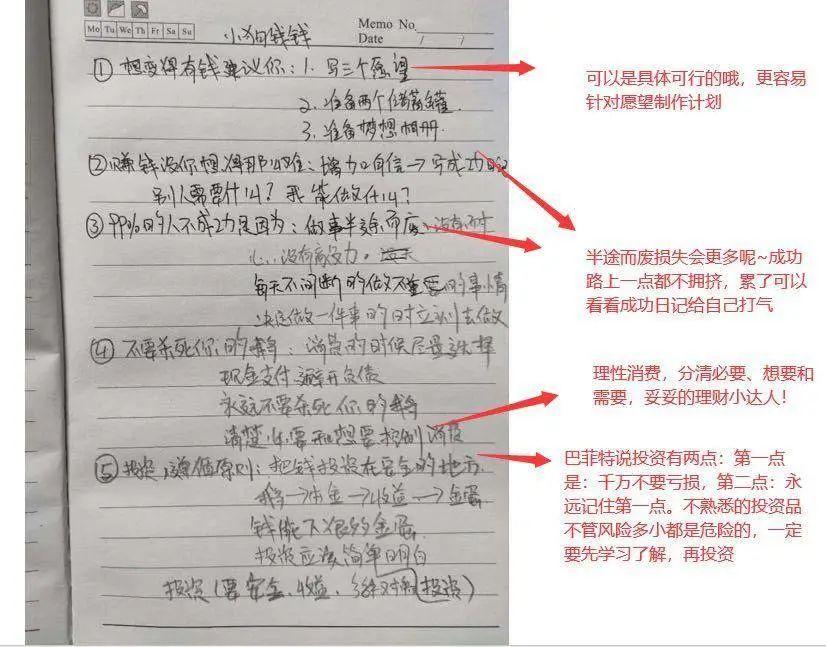 Memo No
Mo Tu We Th Fr Sa Su
Date / /
小狗钱钱
① 想变得有钱建议你：1. 写三个愿望
2. 准备两个储蓄罐.
3. 准备梦想相册.
② 赚钱没你想得那么难：增加自信→写成功日记
别人需要什么？我能做什么？
③ 99%的人不成功是因为：做事半途而废、没有耐
心、没有毅力。
每天不间断的做不重要的事情
决定做一件事的时立刻去做
④ 不要杀死你的鹅：消费的时候尽量选择
现金支付 避开负债
永远不要杀死你的鹅
清楚 需要和想要 控制消费
⑤ 投资 原则：把钱投资在安全的地方.
鹅→本金→收益→金蛋
钱能下很多金蛋
投资应该简单明白
投资（要安全、收益、 投资）
可以是具体可行的哦，更容易
针对愿望制作计划
半途而废损失会更多呢~成功
路上一点都不拥挤，累了可以
看看成功日记给自己打气
理性消费，分清必要、想要和
需要，妥妥的理财小达人！
巴菲特说投资有两点：第一点
是：千万不要亏损，第二点：永
远记住第一点。不熟悉的投资品
不管风险多小都是危险的，一定
要先学习了解，再投资